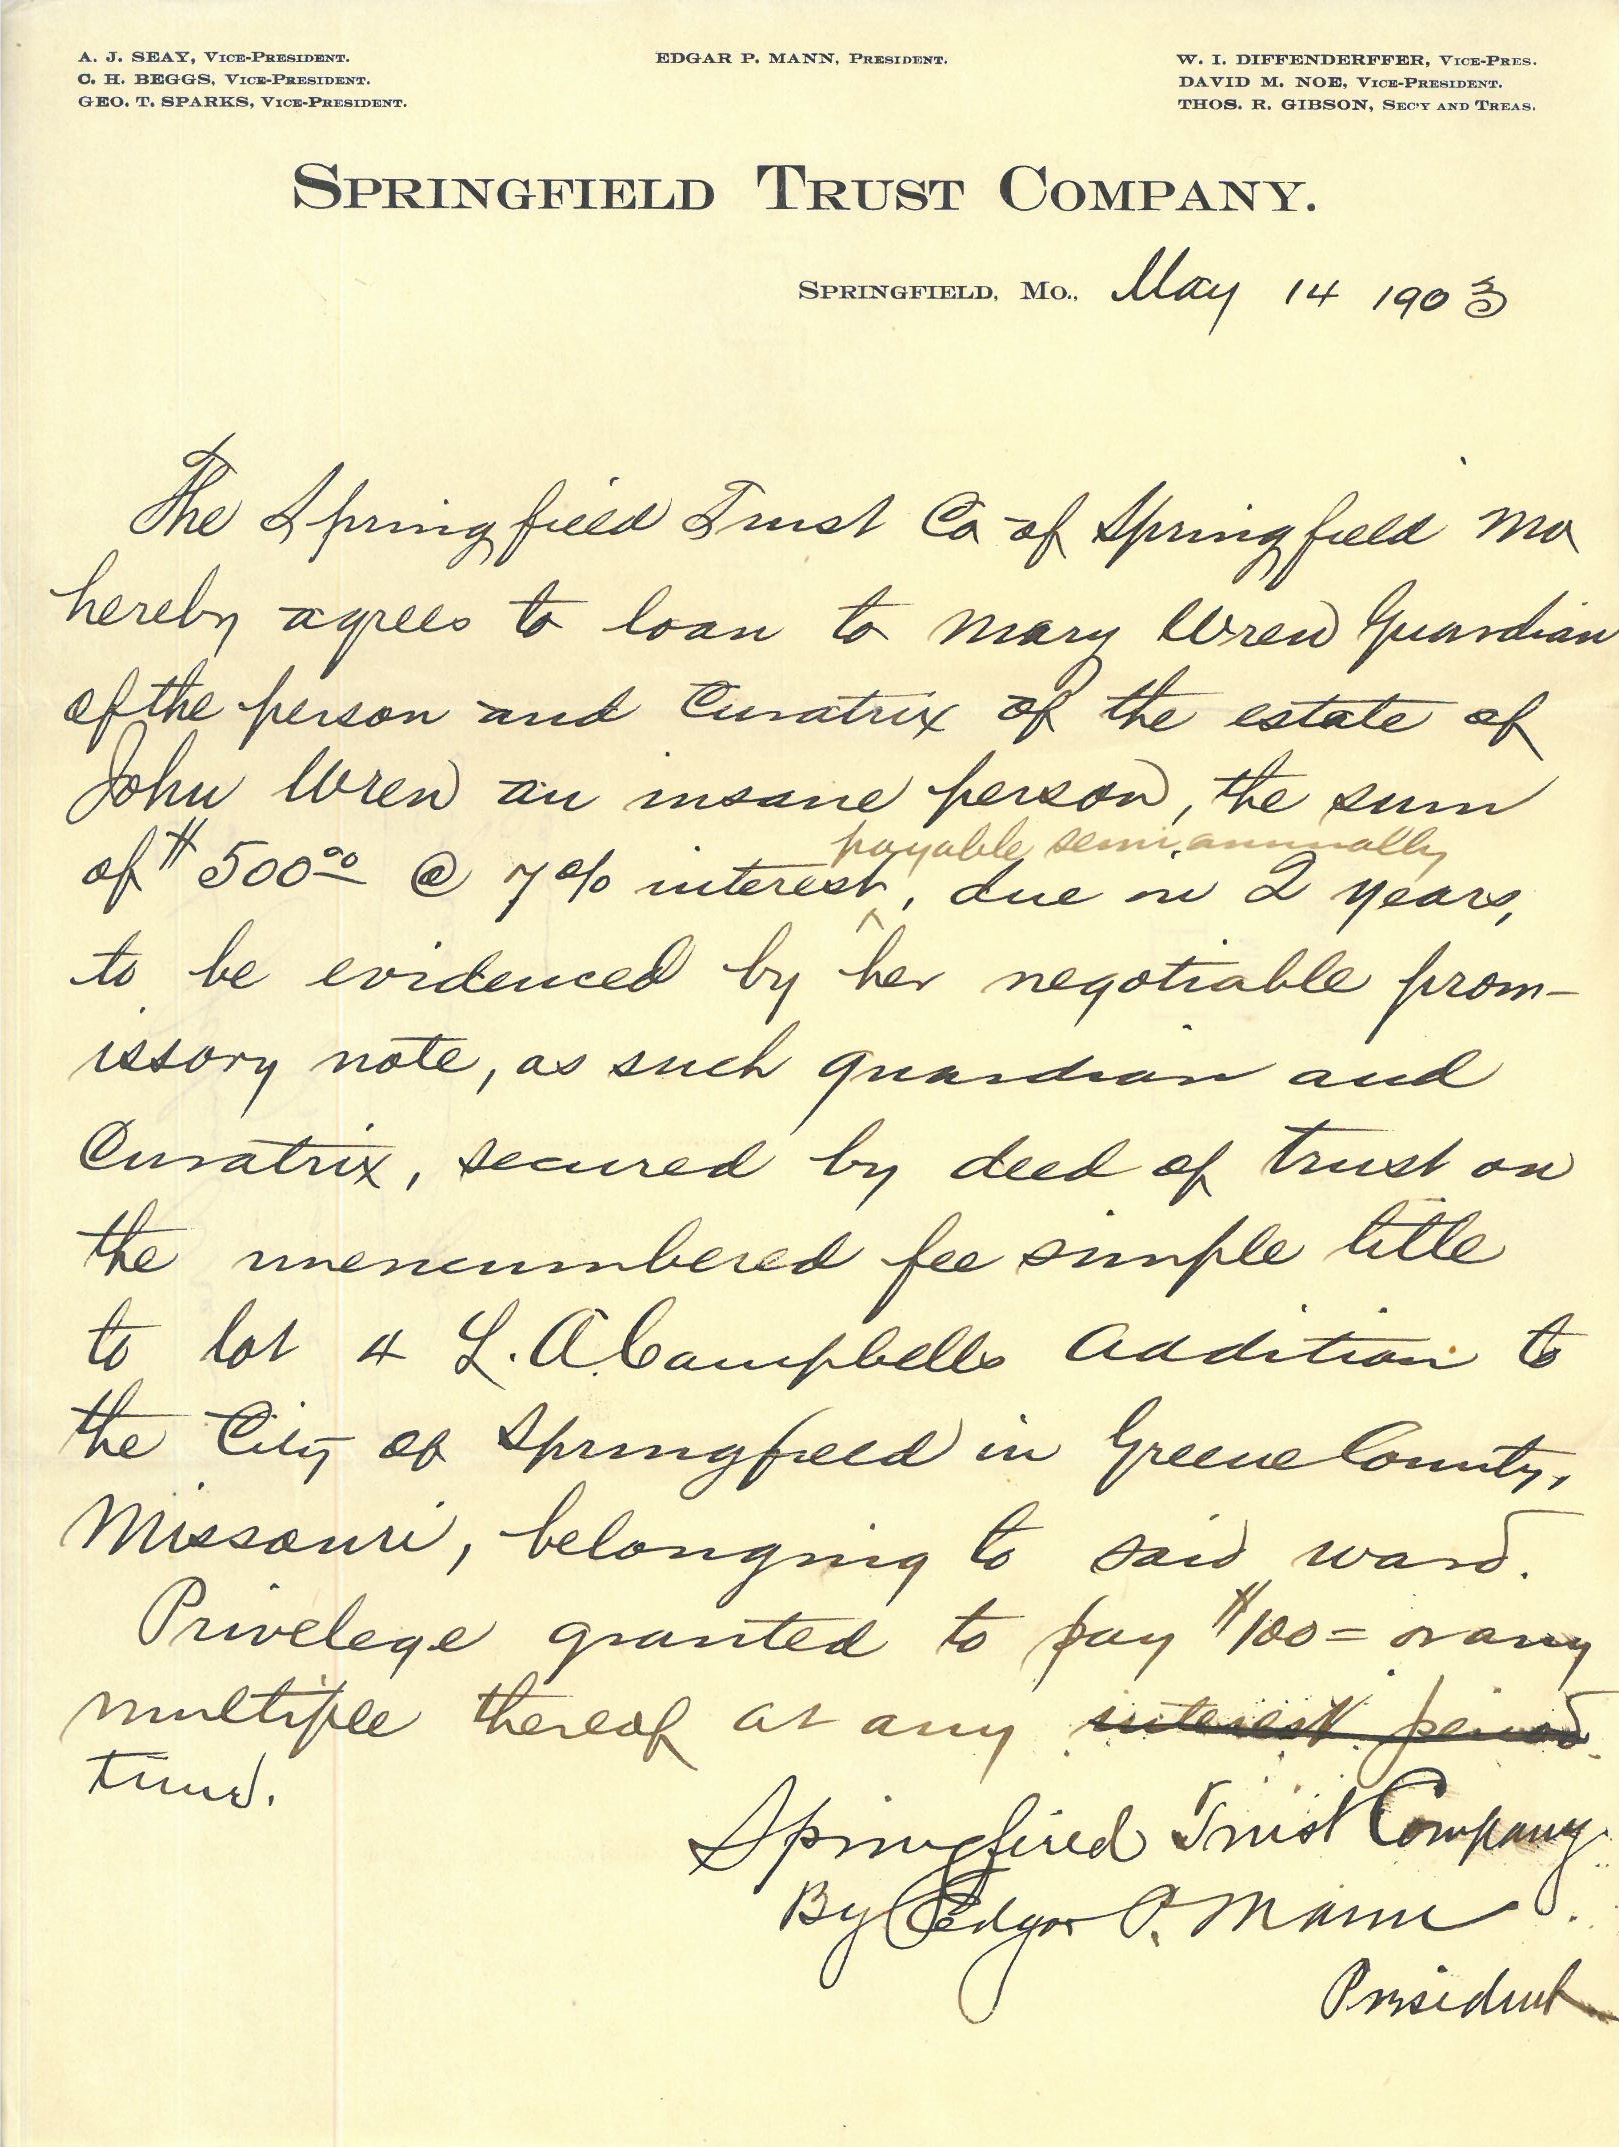 A. J. SEAY, VICE-PRESIDENT.
C. H. BEGGS, VICE-PRESIDENT.
GEO. T. SPARKS, VICE-PRESIDENT.
EDGAR P. MANN, PRESIDENT.
W. I. DIFFENDERFFER, VICE-PRES.
DAVID M. NOE, VICE-PRESIDENT.
THOS. R. GIBSON, SEC'Y AND TREAS.
SPRINGFIELD TRUST COMPANY.
SPRINGFIELD, MO., May 14 1903
The Springfield Trust Co of Springfield Mo
hereby agrees to loan to Mary Wren Guardian
of the person and Curatrix of the estate of
John Wren an insane person, the sum
payable semi annually
of $500.00 @ 7% interest ^, due in 2 years,
to be evidenced by her negotiable prom-
issory note, as such guardian and
Curatrix, secured by deed of trust on
the unencumbered fee simple title
to lot 4 L. A. Campbells Addition to
the City of Springfield in Greene County,
Missouri, belonging to said ward.
Privelege granted to pay $100= or any
multiple thereof at any interest period
time.
Springfield Trust Company
By Edgar P. Mann
President